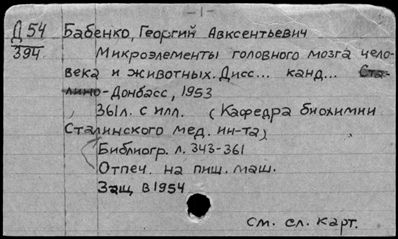 - 1 -
Д 54 Бабенко, Георгий Авксентьевич
394 Микроэлементы головного мозга чело-
века и животных. Дисс... канд... Ста-
лино-Донбасс, 1953
361л. с илл. (Кафедра биохимии
Сталинского мед. ин-та)
Библиогр. л. 343-361
Отпеч. на пиш. маш.
Защ в 1954
см. сл. карт.